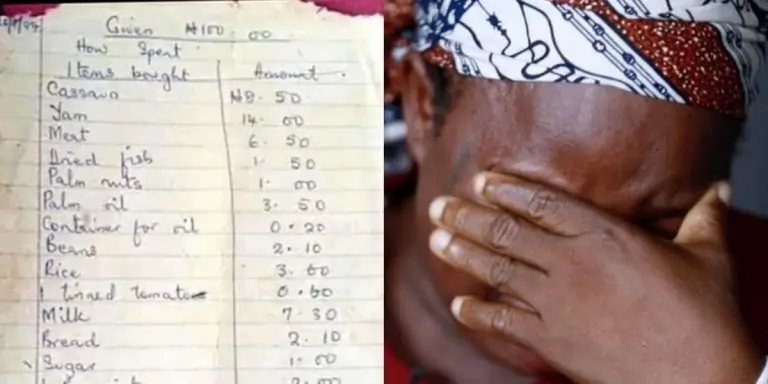 Given ₦100.00
How Spent
Items bought Amount
Cassava ₦8.50
Yam 14.00
Meat 6.50
Dried fish 1.50
Palm nuts 1.00
Palm oil 3.50
Container for oil 0.20
Beans 2.10
Rice 3.60
1 tinned tomato 0.60
Milk 7.30
Bread 2.10
Sugar 1.00